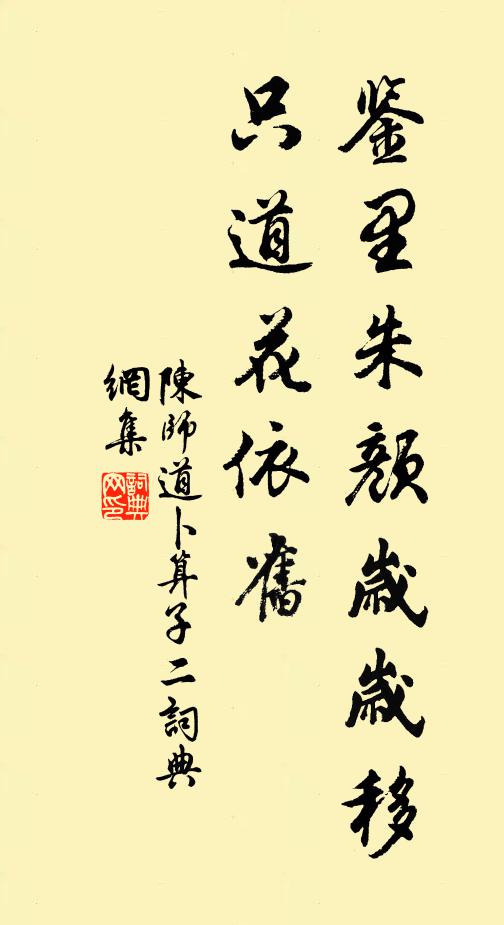 鉴里朱颜歲歲移
只道花依舊
陳師道卜算子二詞典
網集
詞典
网印